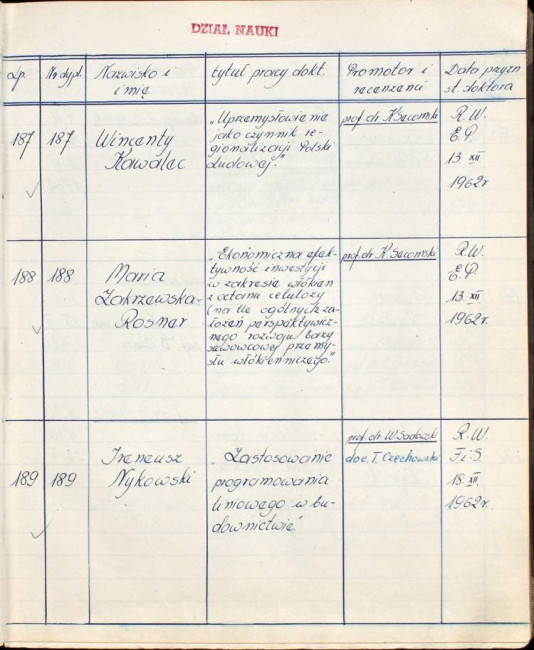 DZIAŁ NAUKI
Lp.
Nr dypl.
Nazwisko i
imię
tytuł pracy dokt.
Promotor i
recenzenci
Data przyzn
st. doktora
187
187
Wincenty
Kawalec
„Uprzemysłowienie
jako czynnik re-
gionalizacji Polski
Ludowej."
prof. dr K Secomski
R.W.
E.P.
13 XII
1962r
188
188
Maria
Zakrzewska-
Rosner
„Ekonomiczna efek-
tywność inwestycji
w zakresie włókien
z octanu celulozy
(na tle ogólnych za-
łożeń perspektywicz-
nego rozwoju bazy
surowcowej przemy-
słu włókienniczego."
prof. dr K Secomski
R.W.
E.P.
13. XII
1962r.
189
189
Ireneusz
Nykowski
„Zastosowanie
programowania
liniowego w bu-
downictwie"
prof. dr W. Sadowski
doc. T. Czechowski
R.W.
F. i S.
18 XII.
1962r.